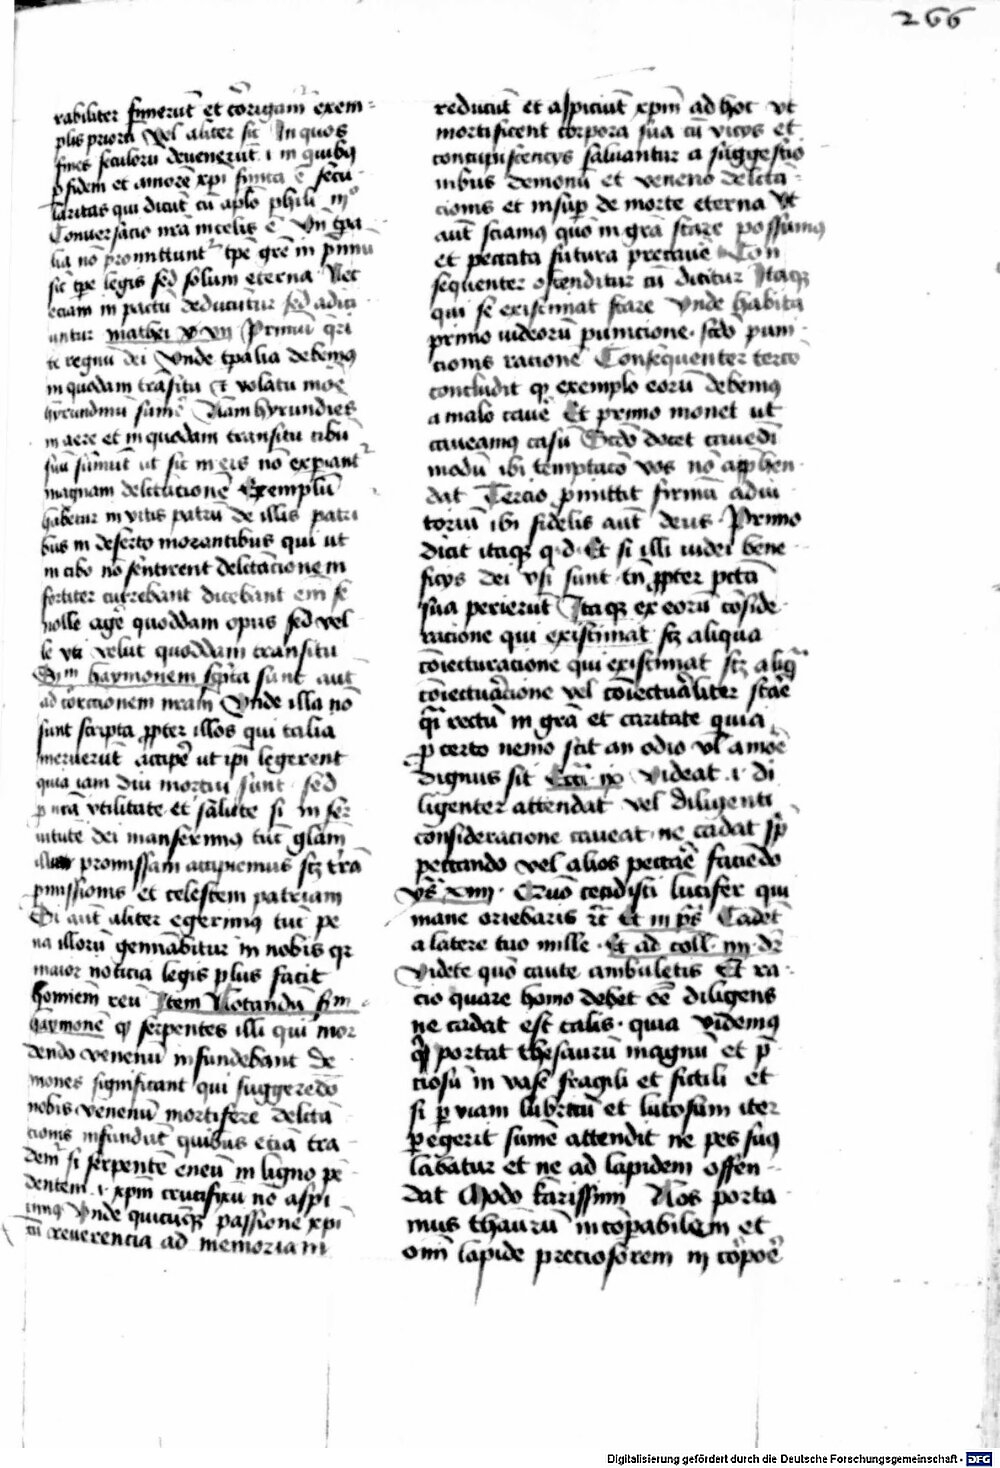 266
rabiliter finierūt et corrigam exem=
plis priorū vel aliter sic In quos
fines seculorū devenerūt .i. in quibꝫ
ꝑ fidem et amorē xpi finita ē secu
laritas qui dicūt cū aplo phili iijº
Conversacio nra in celis ē
lia nō promittunt᷑ tpe grē in
sic tpe legis sed solum eterna Nec
eciam in pactū deducūtur sed adici
untur mathei vi Primū q̄ri
te regnū dei Vnde tpalia debemꝰ
in quodam trāsitu et volatu mōe
hyrundinū sumē Nam hyrundies
in aere et in quodam transitu cibū
suū sumūt ut sic in eis nō
magnam delectacionē Exemplū
habetur in vitis patrū de illis patri
bus in deserto morantibus qui ut
in cibo nō sentirent delectacionem
fortiter currebant dicebant em̄ se
nolle agē quoddam opus sed vel
le velut quoddam transitu
Scdm haymonem scpta sunt aut
ad correctionem nram Vnde illa nō
sunt scripta ꝓpter illos qui talia
meruerūt accipē ut ipi legerent
quia iam diu mortui sunt sed
ꝑ nra vtilitate et salute si in ser
vitute dei manserimꝰ tūc glam
promissam accipiemus scꝫ trā
ꝓmissionis et celestem patriam
Si aut aliter egerimꝰ tūc pe
na illorū geminabitur in nobis qr
maior noticia legis plus facit
homiem reū Item Notandū scdm
haymonē ꝙ serpentes illi qui mor
dendo venenū infundebant de
mones significant qui suggerēdo
nobis venenū mortifere delectā
cionis infundūt quibus eciā tra
dem si serpentē eneū in ligno pē
dentem .i. xpm crucifixū nō aspi
cimꝰ Vnde quicūꝙ passione xpi
cū reverencia ad memoriam
reducūt et aspiciūt xpm ad hoc vt
mortificent corpora sua cū vicijs et
concupiscencijs salvantur a suggestio
nibus demonū et veneno delectā=
cionis et insuꝑ de morte eterna Vt
aut sciamꝰ quō in grā stare possumꝰ
et peccata futura precavē Con
sequenter ostenditur cū dicitur Itaqꝫ
qui se existimat stare Vnde habita
primo iudeorū punicione. scdo puni
cionis racione Consequenter tercō
concludit ꝙ exemplo eorū debemꝰ
a malo cavē Et primo monet ut
caveamꝰ casū Scdō docet cavēdi
modū ibi temptacō vos nō apphen
dat Tercio ꝓmittit firmū adiu
toriū ibi fidelis aut deus. Primo
dicit itaqꝫ q.d. Et si illi iudei bene
ficijs dei vsi sunt tn̄ ꝓpter pctā
sua perierūt Itaqꝫ ex eorū cōside
racione qui existimat scꝫ aliqua
coiecturacione qui existimat scꝫ aliqᷓ
coiecturacione vel coiecturaliter stāe
ꝙ rectū in grā et caritate quia
ꝑ certo nemo scit an odio vl amoē
dignus sit Ecci. ix Videat .i. di
ligenter attendat vel diligenti
consideracione caveat. ne cadat sꝫ
peccando vel alios peccāē faciēdo
ys xiiij. Quō cecidisti lucifer qui
mane oriebaris ꝛc Et in ps Cadēt
a latere tuo mille. Et ad coll iiij dr
Videte quō caute ambuletis Et ra
cio quare homo debet eē diligens
ne cadat est talis. quia videmꝰ
ꝙ portat thesaurū magnū et p̄
ciosū in vase fragili et fictili et
si ꝑ viam lubricū et lutosum iter
ꝑegerit sumē attendit ne pes suꝰ
labatur et ne ad lapidem offen
dat Modo karissimi Nos porta
mus thaurū incōpabilem et
omī lapide preciosorem in cōpoē
Digitalisierung gefördert durch die Deutsche Forschungsgemeinschaft - DFG